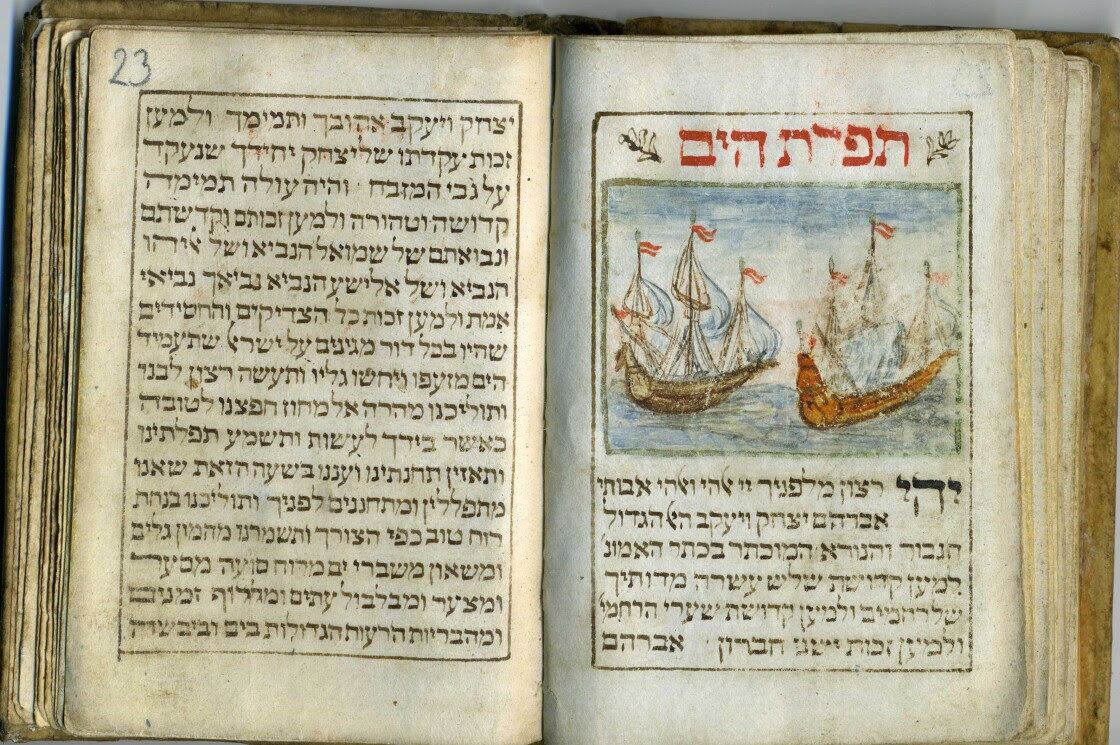 תפלת הים
יהי רצון מלפניך יי ﭏהי וﭏהי אבותי
אברהם יצחק ויעקב הﭏ הגדול
הגבור והנורא המוכתר בכתר האמונ'
למען קדושת שלש עשרה מדותיך
של רחמים ולמען קדושת שערי הרחמי'
ולמען זכות ישני חברון אברהם
23
יצחק ויעקב אהובך ותמימך ולמען
זכות עקדתו של יצחק יחידך שנעקד
על גבי המזבח והיה עולה תמימה
קדושה וטהורה ולמען זכותם וקדשתם
ונבואתם של שמואל הנביא ושל אליהו
הנביא ושל אלישע הנביא נביאך נביאי
אמת ולמען זכות כל הצדיקים והחסידים
שהיו בכל דור מגינים על ישרﭏ שתעמיד
הים מזעפו ויחשו גליו ותעשה רצון לבנו
ותוליכנו מהרה אל מחוז חפצנו לטובה
כאשר בידך לעשות ותשמע תפלתינו
ותאזין תחנתינו ועננו בשעה הזאת שאנו
מתפללין ומתחננים לפניך ותוליכנו בנחת
רוח טוב כפי הצורך ותשמרנו מהמון גלים
ומשאון משברי ים מרוח סועה מסער
ומצער ומבלבול עתים ומחלוף זמנים
ומהבריות הרעות הגדולות בים וביבשה